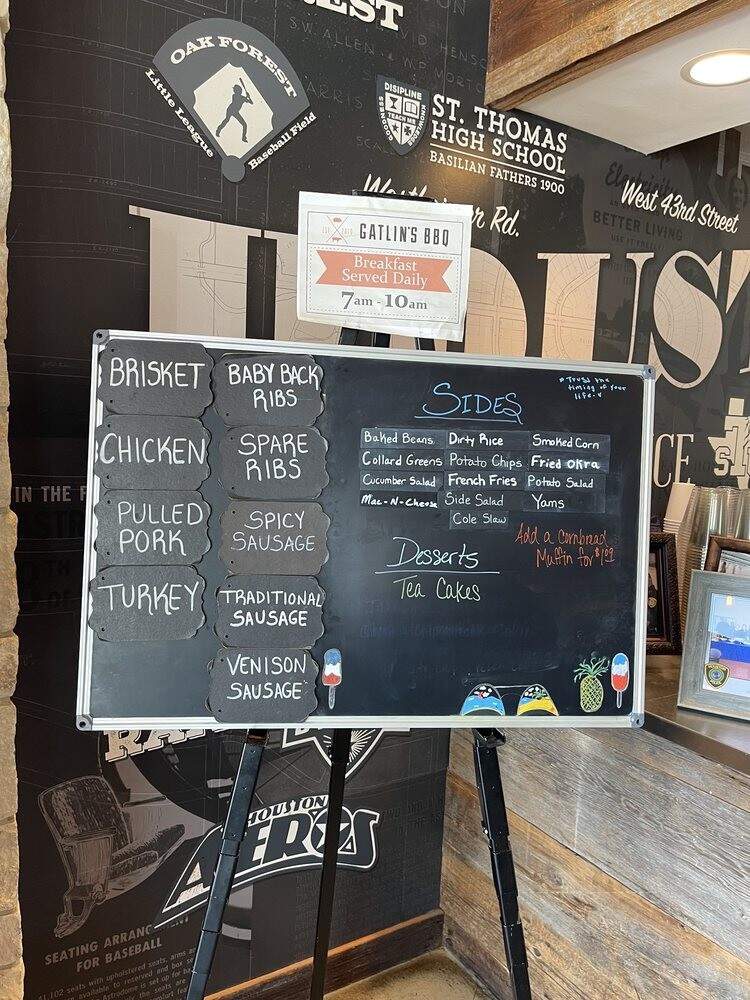 REST
S.W. ALLEN
OAK FOREST
Little League
Baseball Field
DISCIPLINE
KNOWLEDGE
GOODNESS
TEACH ME
ST. THOMAS
HIGH SCHOOL
BASILIAN FATHERS 1900
Rd.
West 43rd Street
BETTER LIVING
GATLIN'S BBQ
Breakfast
Served Daily
7am - 10am
BRISKET
CHICKEN
PULLED
PORK
TURKEY
BABY BACK
RIBS
SPARE
RIBS
SPICY
SAUSAGE
TRADITIONAL
SAUSAGE
VENISON
SAUSAGE
* Trust the
timing of your
life
SIDES
Baked Beans Dirty Rice Smoked Corn
Collard Greens Potato Chips Fried Okra
Cucumber Salad French Fries Potato Salad
Mac-N-Cheese Side Salad Yams
Cole Slaw
Add a Cornbread
Muffin for $1.09
Desserts
Tea Cakes
IN THE
HOUSTON
AEROS
SEATING
FOR BASEBALL
seats with upholstered seats, arms